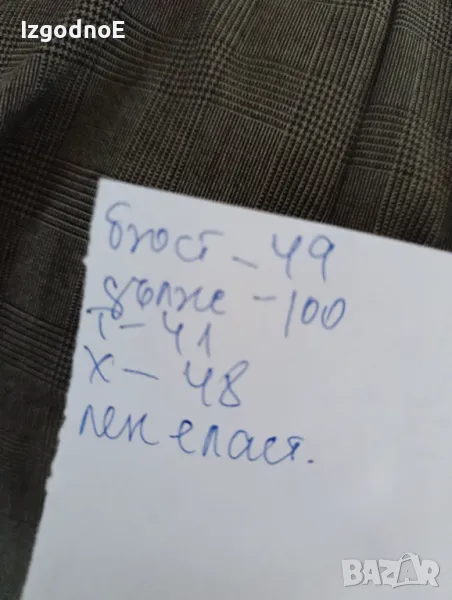 IzgodnoE
бюст - 49
дълж - 100
Т - 41
Х - 48
лек еласт.
BAZAR